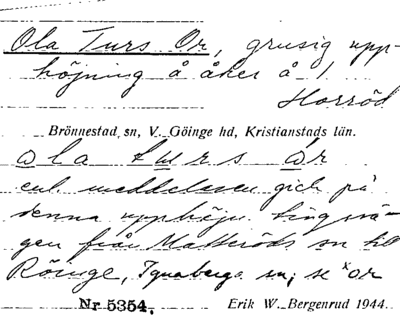 Ola Turs Or, grusig upp-
höjning å åker å 1
Horröd
Brönnestad sn, V. Göinge hd, Kristianstads län.
ola turs or
enl. meddelaren gick på
denna upphöjn. tingsvä-
gen från Matteröds sn till
Röinge, Ignaberga sn; se ˣor
Nr 5354. Erik W. Bergenrud 1944.